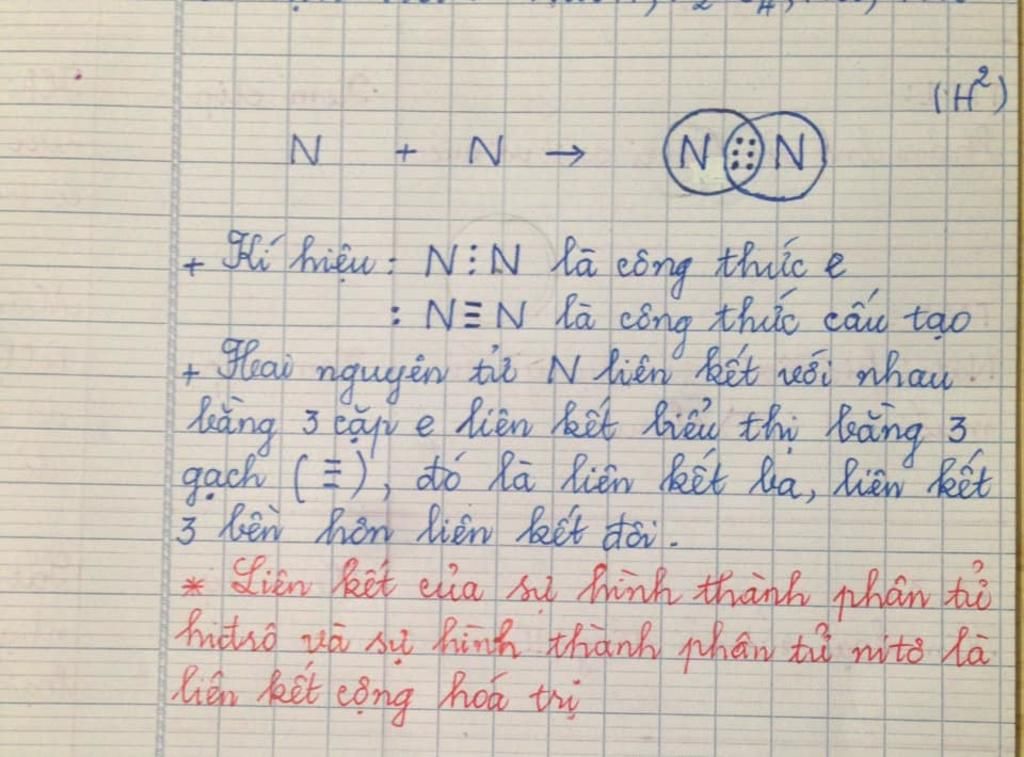 (H²)
N + N → N ⋮⋮ N
+ Kí hiệu : N⋮N là công thức e
: N≡N là công thức cấu tạo
+ Hai nguyên tử N liên kết với nhau
bằng 3 cặp e liên kết biểu thị bằng 3
gạch (≡), đó là liên kết ba, liên kết
3 bền hơn liên kết đôi.
* Liên kết của sự hình thành phân tử
hiđrô và sự hình thành phân tử nitơ là
liên kết cộng hoá trị